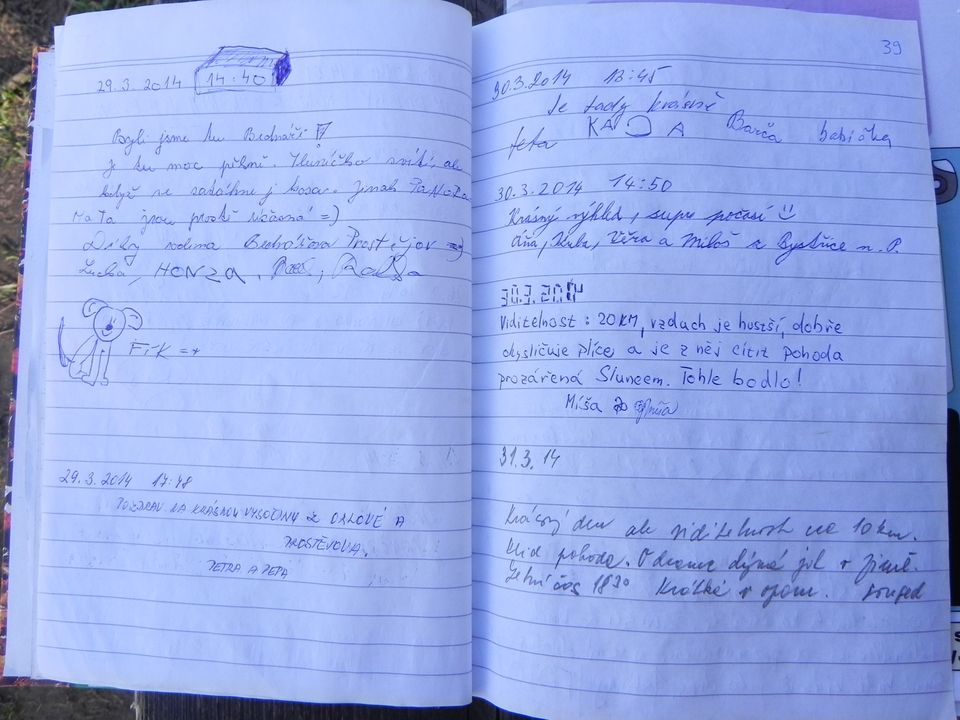 29.3.2014 14:40
Byli jsme tu Bednáři!
je tu moc pěkně. Sluníčko svítí, ale
když se zatáhne j kosa. Jinak PaNoRa
MaTa jsou prostě úžasná =)
Díky rodina Bednářova Prostějov =)
HONZA,
Fík =*
29.3.2014 17:48
POZDRAV NA KRÁSNOU VYSOČINU Z ORLOVÉ A
PROSTĚJOVA.
PETRA A PEPA
39
30.3.2014 13:45
Je tady krásně
teta KÁJA Barča babička
30.3.2014 14:50
Krásný výhled, supr počasí
Kuba, Věra a Miloš z Bystřice n. P.
30.3.2014
Viditelnost : 20KM, vzduch je hustší, dobře
okysličuje plíce a je z něj cítit pohoda
prozářená Sluncem. Tohle bodlo!
Míša
31.3.14
Krásný den ale viditelnost na 10 km.
Klid pohoda. dýmá jak v zimě.
Letní čas 18³⁰ Krátké v